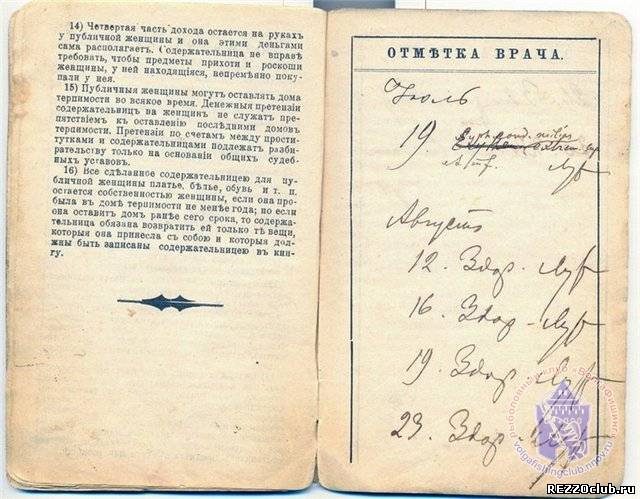 14) Четвертая часть дохода остается на рукахъ
у публичной женщины и она этими деньгами
сама располагаетъ. Содержательница не вправѣ
требовать, чтобы предметы прихоти и роскоши
женщины, у ней находящіяся, непремѣнно поку-
пали у нея.
15) Публичныя женщины могутъ оставлять дома
терпимости во всякое время. Денежныя претензіи
содержательницъ на женщинъ не служатъ пре-
пятствіемъ къ оставленію послѣдними домовъ
терпимости. Претензіи по счетамъ между прости-
тутками и содержательницами подлежатъ разби-
рательству только на основаніи общихъ судеб-
ныхъ уставовъ.
16) Все сдѣланное содержательницею для пу-
бличной женщины платье, бѣлье, обувь и т. п.
остается собственностью женщины, если она про-
была въ домѣ терпимости не менѣе года; но если
она оставитъ домъ ранѣе сего срока, то содержа-
тельница обязана возвратить ей только тѣ вещи,
которыя она принесла съ собою и которыя дол-
жны быть записаны содержательницею въ кни-
гу.
ОТМѢТКА ВРАЧА.
Іюль
19
Августъ
12. Здор.
16. Здор.
19. Здор.
23. Здор.
рыболовный клуб «Волгафишинг»
volgafishingclub.nnov.ru
REZZOclub.ru